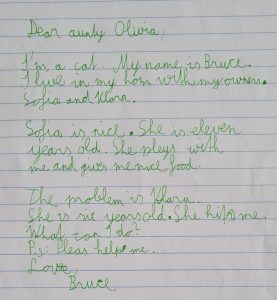 Dear aunty Olivia,
I'm a cat. My name is Bruce.
I live in my hom with my owners.
Sofia and Klara.
Sofia is nice. She is eleven
years old. She pleys with
me and gives me nice food.
The problem is Klara.
She is six years old. She hits me.
What can I do?
P.s: Pleas help me.
Love,
Bruce